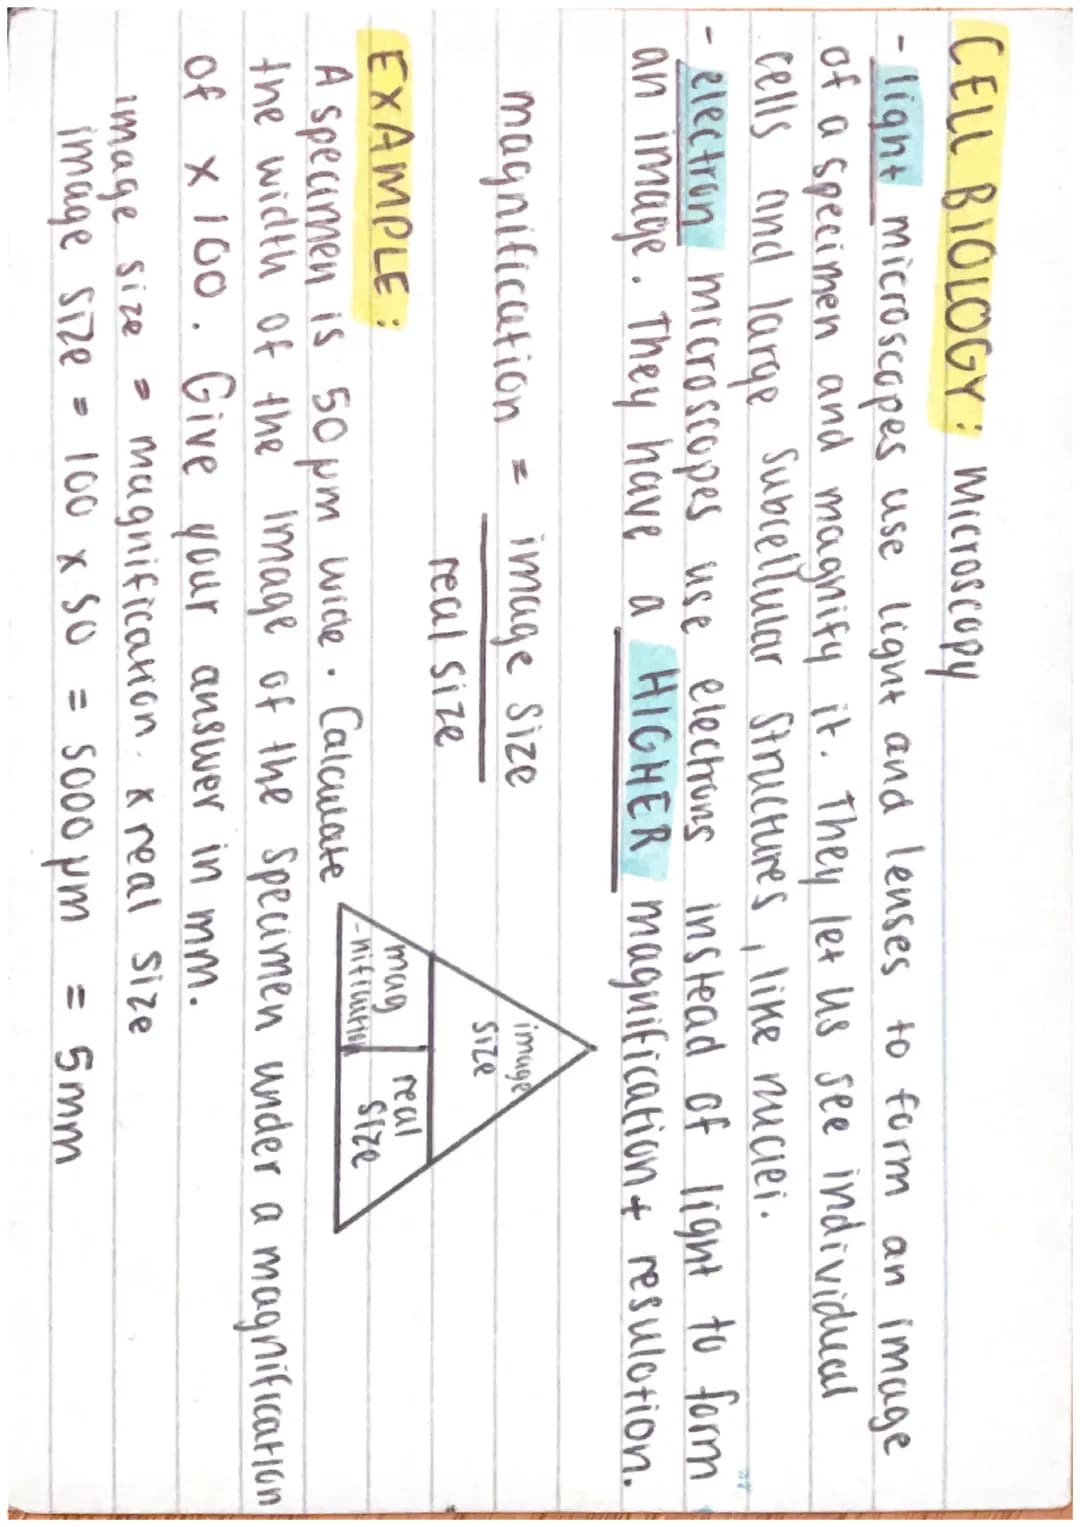 CELL BIOLOGY: Microscopy
- light microscopes use light and lenses to form an image
of a specimen and magnify it. They let us see individual
cells and large subcellular structures, like nuclei.
- electron microscopes use electrons instead of light to form
an image. They have a HIGHER magnification + resulotion.
magnification = image size
real size
image
size
mag
-nification
real
size
EXAMPLE:
A specimen is 50 µm wide. Calculate
the width of the image of the specimen under a magnification
of x 100. Give your answer in mm.
image size = magnification x real size
image size = 100 x 50 = 5000 µm = 5mm